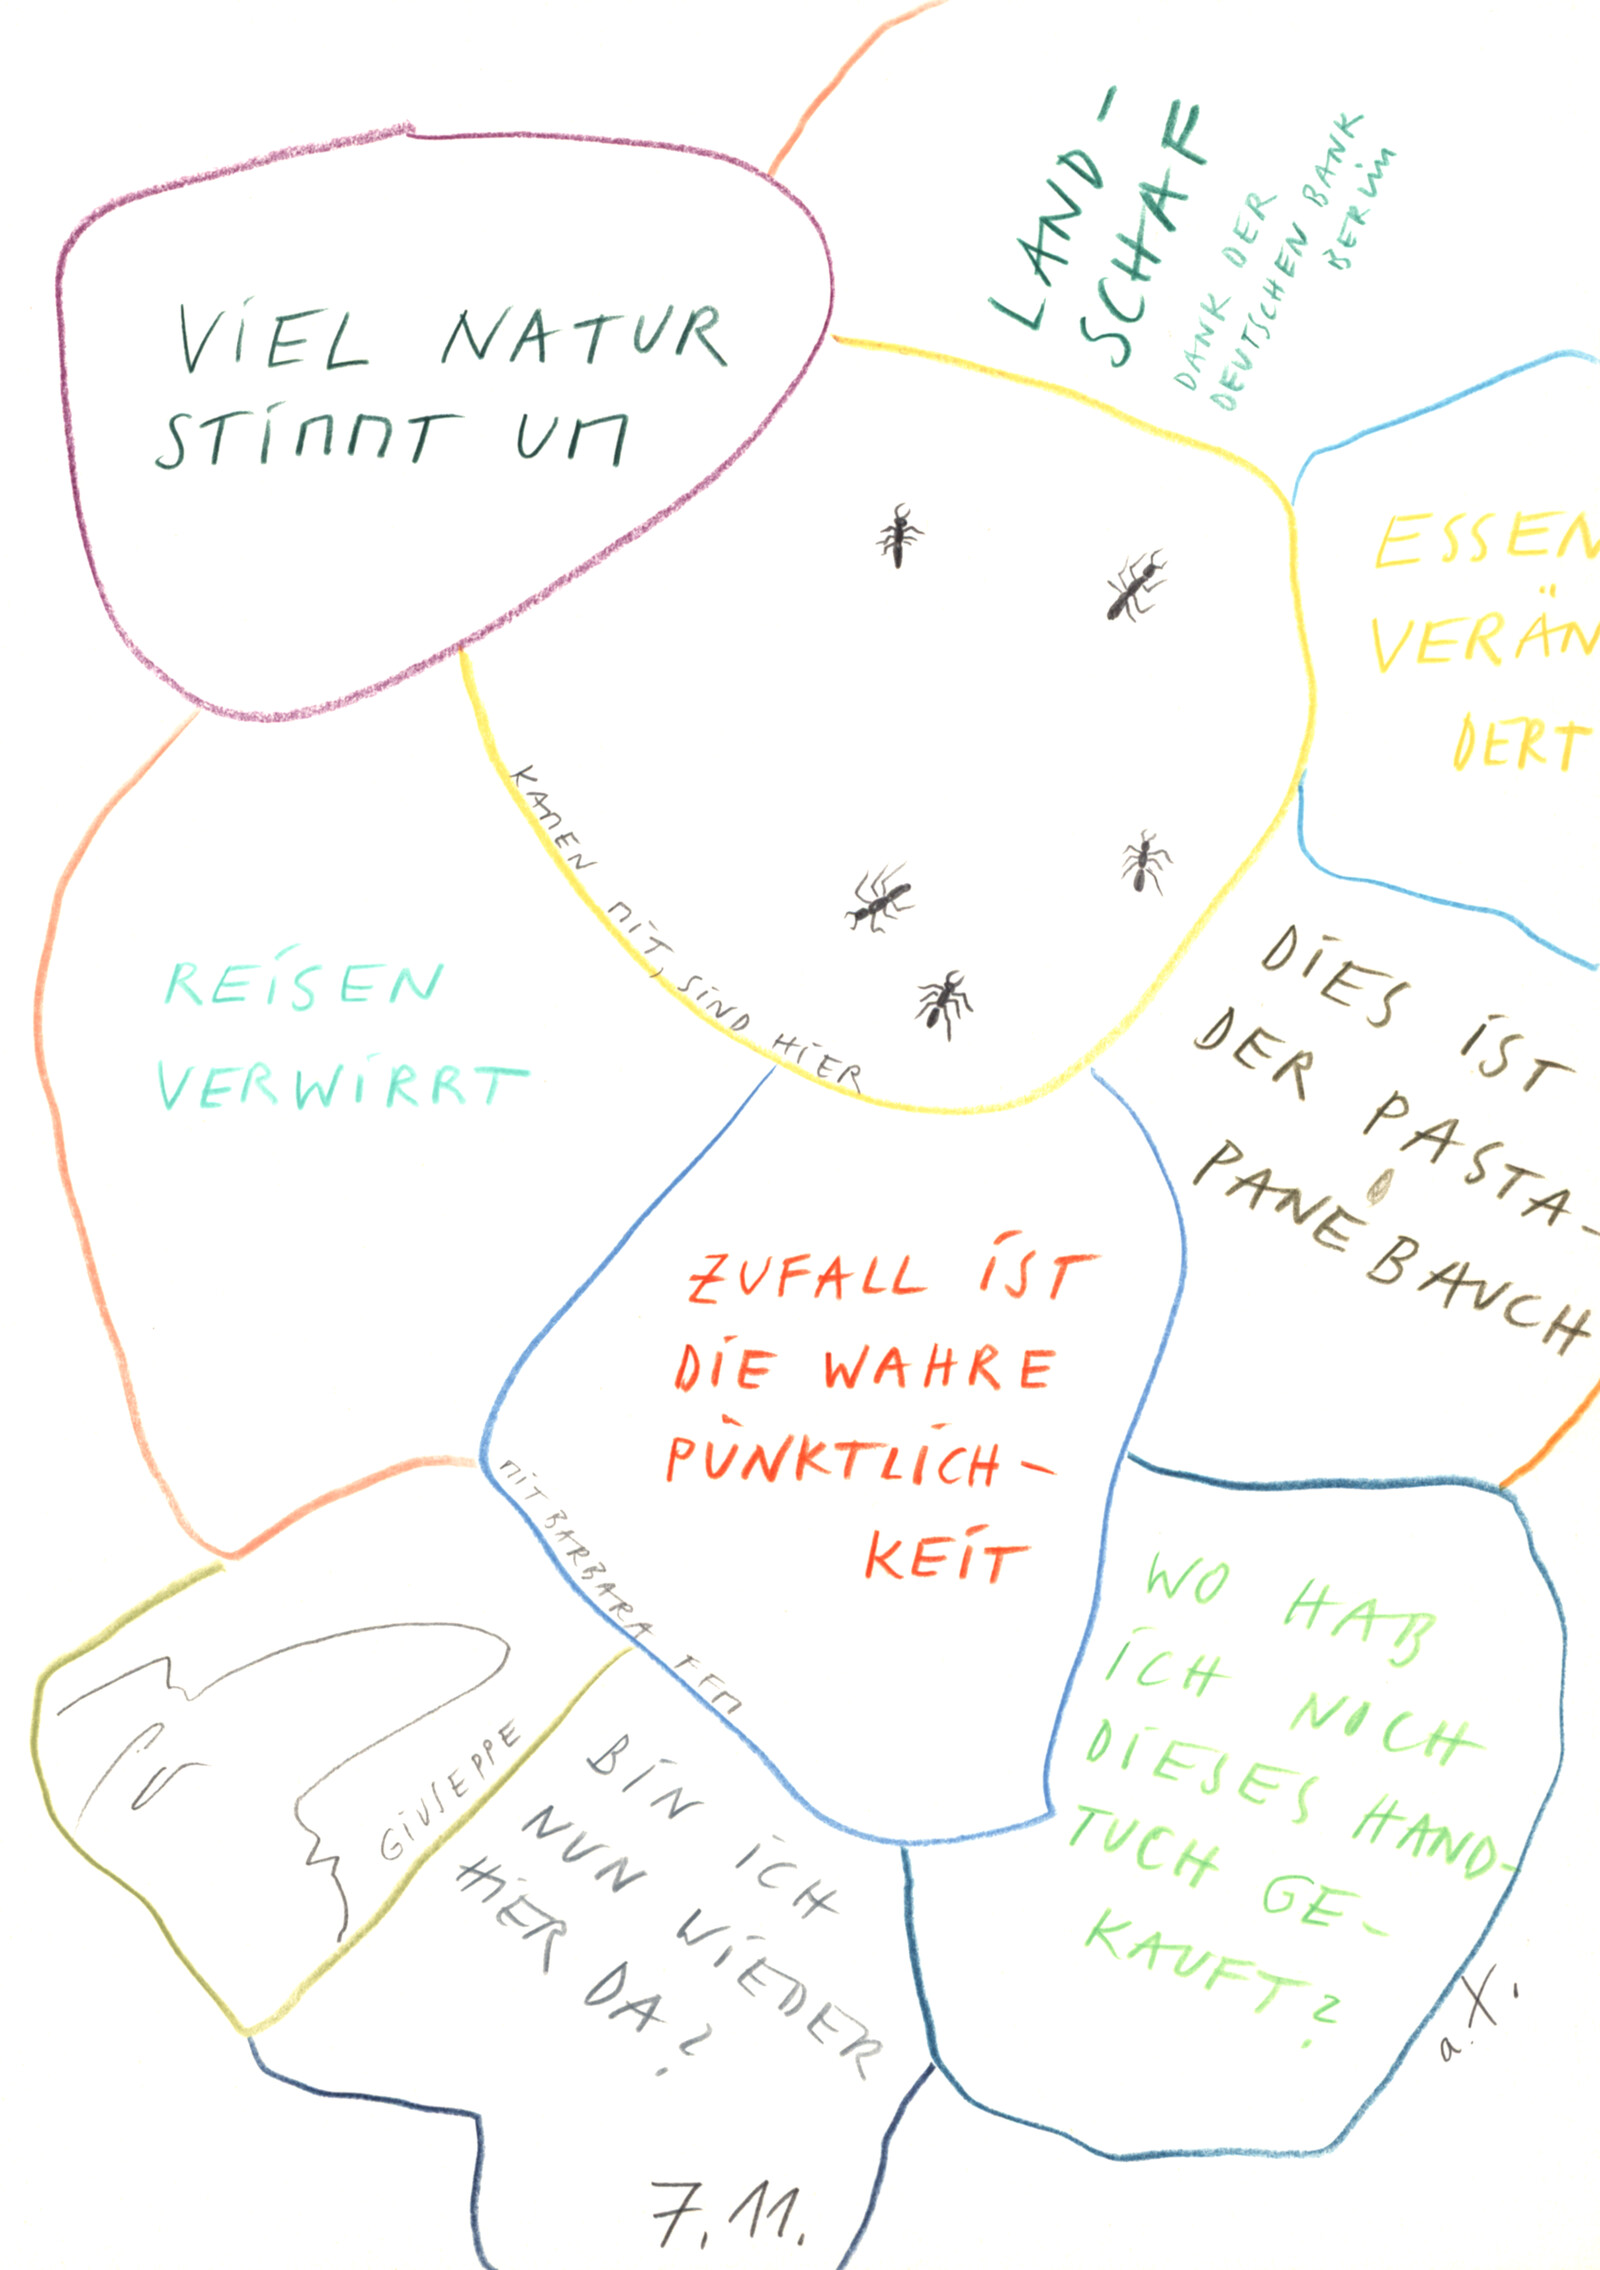 LAND-
SCHAF
DANK DER
DEUTSCHEN BANK
BERLIN
VIEL NATUR
STIMMT UM
ESSEN
VERÄN
DERT
KAMEN MIT, SIND HIER
REISEN
VERWIRRT
DIES IST
DER PASTA-
PANE BAUCH
ZUFALL IST
DIE WAHRE
PÜNKTLICH-
KEIT
MIT BARBARA FFM
WO HAB
ICH NOCH
DIESES HAND-
TUCH GE-
KAUFT?
GIUSEPPE
BIN ICH
NUN WIEDER
HIER DA?
a.X.
7.11.